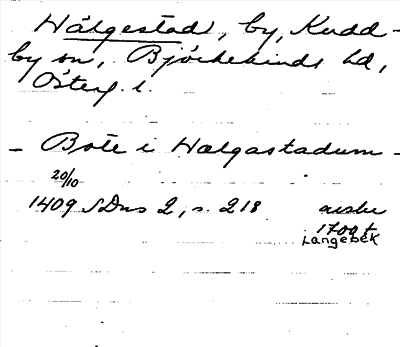 Hälgestad, by, Kudd-
by sn, Björkekinds hd,
Österg. l.
- Bote i Halgastadum -
20/10
1409 SDns 2, s. 218 avskr
1700 t
Langebek